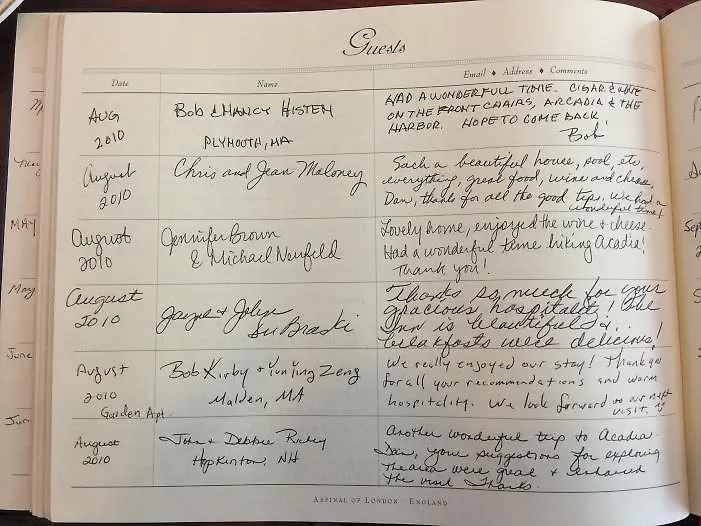 Guests
Date
Name
Email ♦ Address ♦ Comments
AUG
2010
Bob & NANCY HISTEN
PLYMOUTH, MA
HAD A WONDERFULL TIME. CIGAR & WINE
ON THE FRONT CHAIRS, ARCADIA & THE
HARBOR. HOPE TO COME BACK!
Bob
August
2010
Chris and Jean Maloney
Such a beautiful house, pool, etc,
everything, great food, wine and cheese,
Dan, thanks for all the good tips. We had a
wonderful time!
August
2010
Jennifer Brown
& Michael Neufeld
Lovely home, enjoyed the wine & cheese.
Had a wonderful time hiking Acadia!
Thank you!
August
2010
Jayne + John
Thanks so much for your
gracious hospitality! The
Inn is beautiful &
breakfasts were delicious!
August
2010
Garden Apt.
Bob Kirby + YunYing Zeng
Malden, MA
We really enjoyed our stay! Thank you
for all your recommendations and warm
hospitality. We look forward to our next
visit.
August
2010
John & Debbie
Hopkinton, NH
Another wonderful trip to Acadia.
Dan, your suggestions for exploring
the area were great & enhanced
the visit Thanks.
ASPINAL OF LONDON · ENGLAND
MAY
May
June